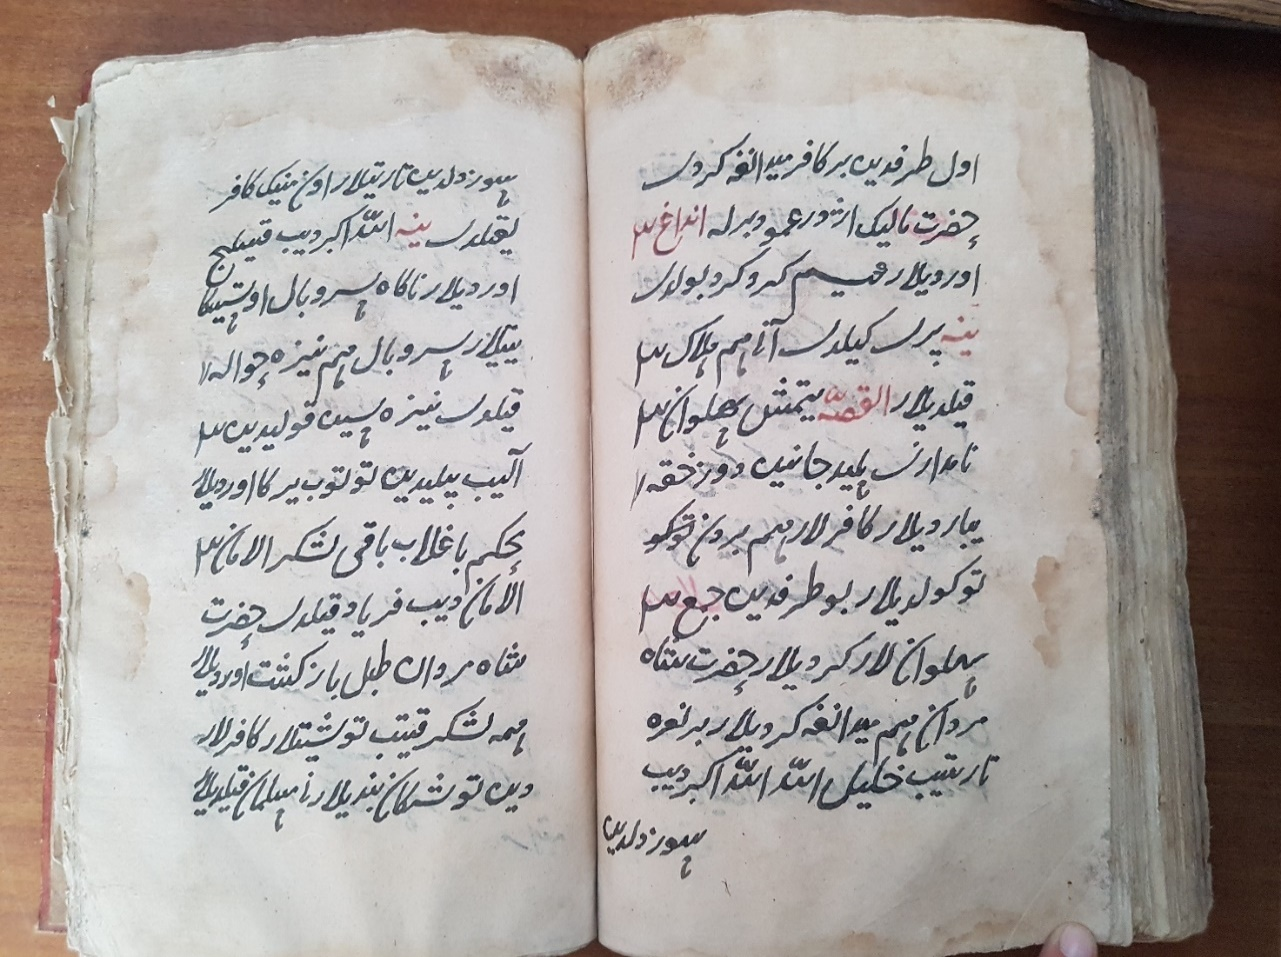 اول طرفدین بر کافر میدانغه کردی
حضرت مالیک اژدر عمود برله انداغ
اوردیلار کرد کرد بولدی
ینه بری کیلدی آنی هم هلاک
قیلدیلار القصّه یتمش پهلوان
نامدارنی پلید جانین دوزخقه
یباردیلار کافرلار هم بردن توکو
توکولدیلار بو طرفدین جمع
پهلوانلار کردیلار حضرت شاه
مردان هم میدانغه کردیلار بر نعره
تارتیب خلیل اللّه اللّه اکبر دیب
سوز دلدین
سوز دلدین تارتیلار اون مینک کافر
یقیلدی ینه اللّه اکبر دیب قیلیج
اوردیلار ناکاه سرو بال اوستیکا
یتیلار سرو بال هم نیزه حواله
قیلدی نیزه سین قولیدین
آلیب بیلیدین توتوب یرکا اوردیلار
محکم باغلاب باقی لشکر الامان
الامان دیب فریاد قیلدی حضرت
شاه مردان طبل باز کشت اوردیلار
همه لشکر قیتیب توشتیلار کافرلار
دین توشکان بندیلارنی مسلمان قیلدیلار